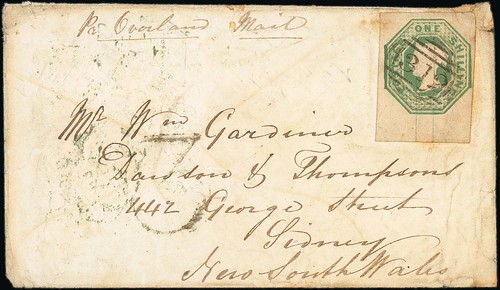 Pr Overland Mail
ONE SHILLING
Mr Wm Gardiner
Dawson & Thompsons
442 George Street
Sidney
New South Wales